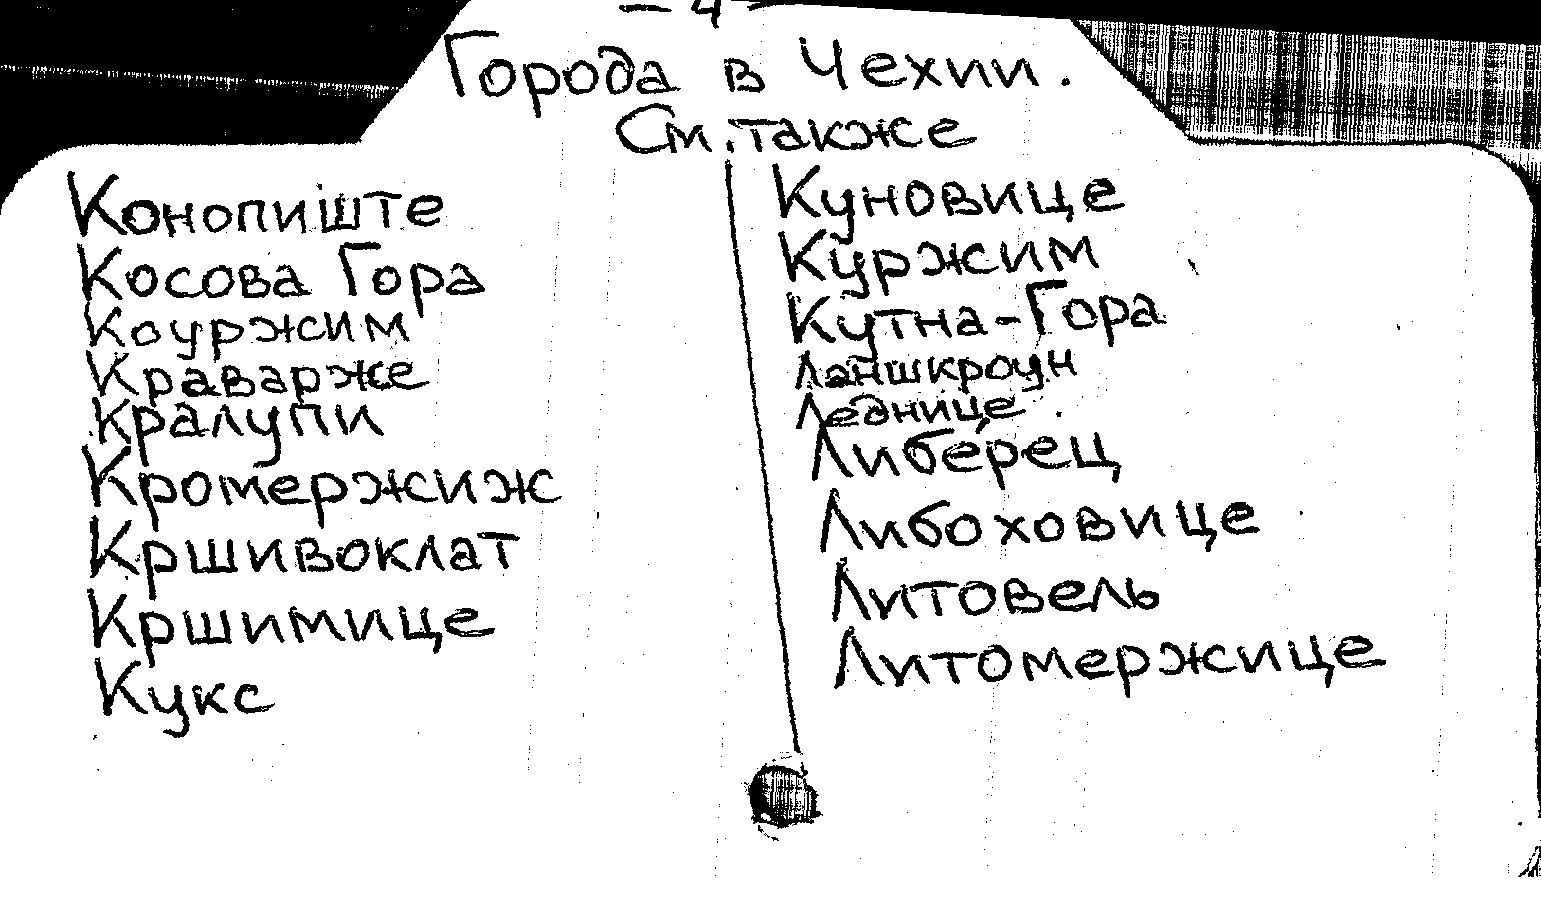 — 4 —
Города в Чехии.
См. также
Конопиште
Косова Гора
Коуржим
Краварже
Кралупи
Кромержиж
Кршивоклат
Кршимице
Кукс
Куновице
Куржим
Кутна-Гора
Ланшкроун
Леднице
Либерец
Либоховице
Литовель
Литомержице